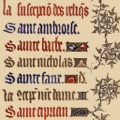 la susception des reliq̄s
Saint ambroise.
Sainte barbe.
Saint nicholas
Sainte fare.
la cõcept nr̄e dame
Saint ciprian